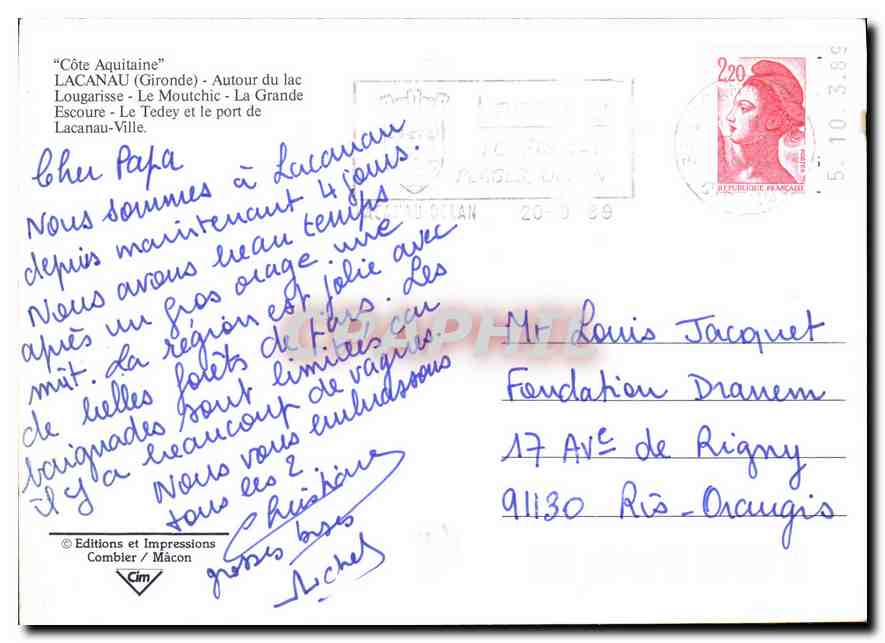 "Côte Aquitaine"
LACANAU (Gironde) - Autour du lac
Lougarisse - Le Moutchic - La Grande
Escoure - Le Tedey et le port de
Lacanau-Ville.
Cher Papa
Nous sommes à Lacanau
depuis maintenant 4 jours.
Nous avons beau temps
après un gros orage une
nuit. La région est jolie avec
de belles forêts de pins. Les
baignades sont limitées car
il y a beaucoup de vagues.
Nous vous embrassons
tous les 2.
Christiane
grosses bises
Michel
© Editions et Impressions
Combier / Mâcon
Cim
2,20
POSTES
REPUBLIQUE FRANÇAISE
5. 10 3.89
OCEAN 20- 89
Mr Louis Jacquet
Fondation Dranem
17 Ave de Rigny
91130 Ris-Orangis